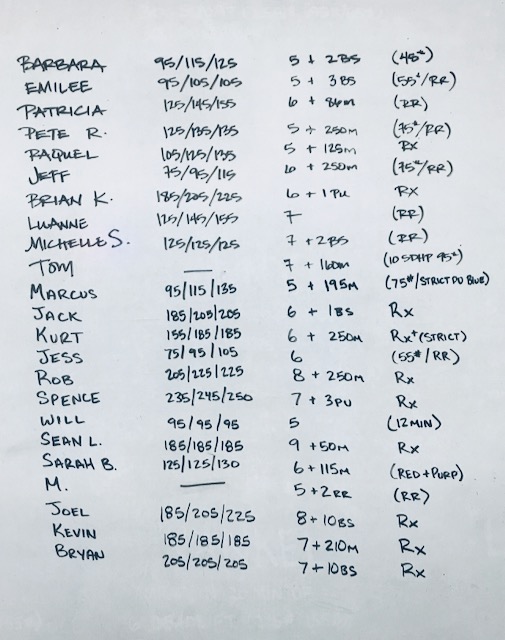 BARBARA 95/115/125 5 + 2BS (45#)
EMILEE 95/105/105 5 + 3BS (55#/RR)
PATRICIA 125/145/155 6 + 86M (RR)
PETE R. 125/135/135 5 + 250M (75#/RR)
RAQUEL 105/125/135 5 + 125M RX
JEFF 75/95/115 6 + 250M (75#/RR)
BRIAN K. 185/205/225 6 + 1 PU RX
LUANNE 125/145/155 7 (RR)
MICHELLE S. 125/125/125 7 + 2BS (RR)
TOM — 7 + 160M (10 SDHP 95#)
MARCUS 95/115/135 5 + 195M (75#/STRICT PU BLUE)
JACK 185/205/205 6 + 1BS Rx
KURT 155/185/185 6 + 250M Rx+(STRICT)
JESS 75/95/105 6 (55#/RR)
ROB 205/225/225 8 + 250M Rx
SPENCE 235/245/250 7 + 3PU Rx
WILL 95/95/95 5 (12MIN)
SEAN L. 185/185/185 9 + 50M Rx
SARAH B. 125/125/130 6 + 115M (RED + PURP)
M. — 5 + 2RR (RR)
JOEL 185/205/225 8 + 10BS Rx
KEVIN 185/185/185 7 + 210M Rx
BRYAN 205/205/205 7 + 10BS Rx